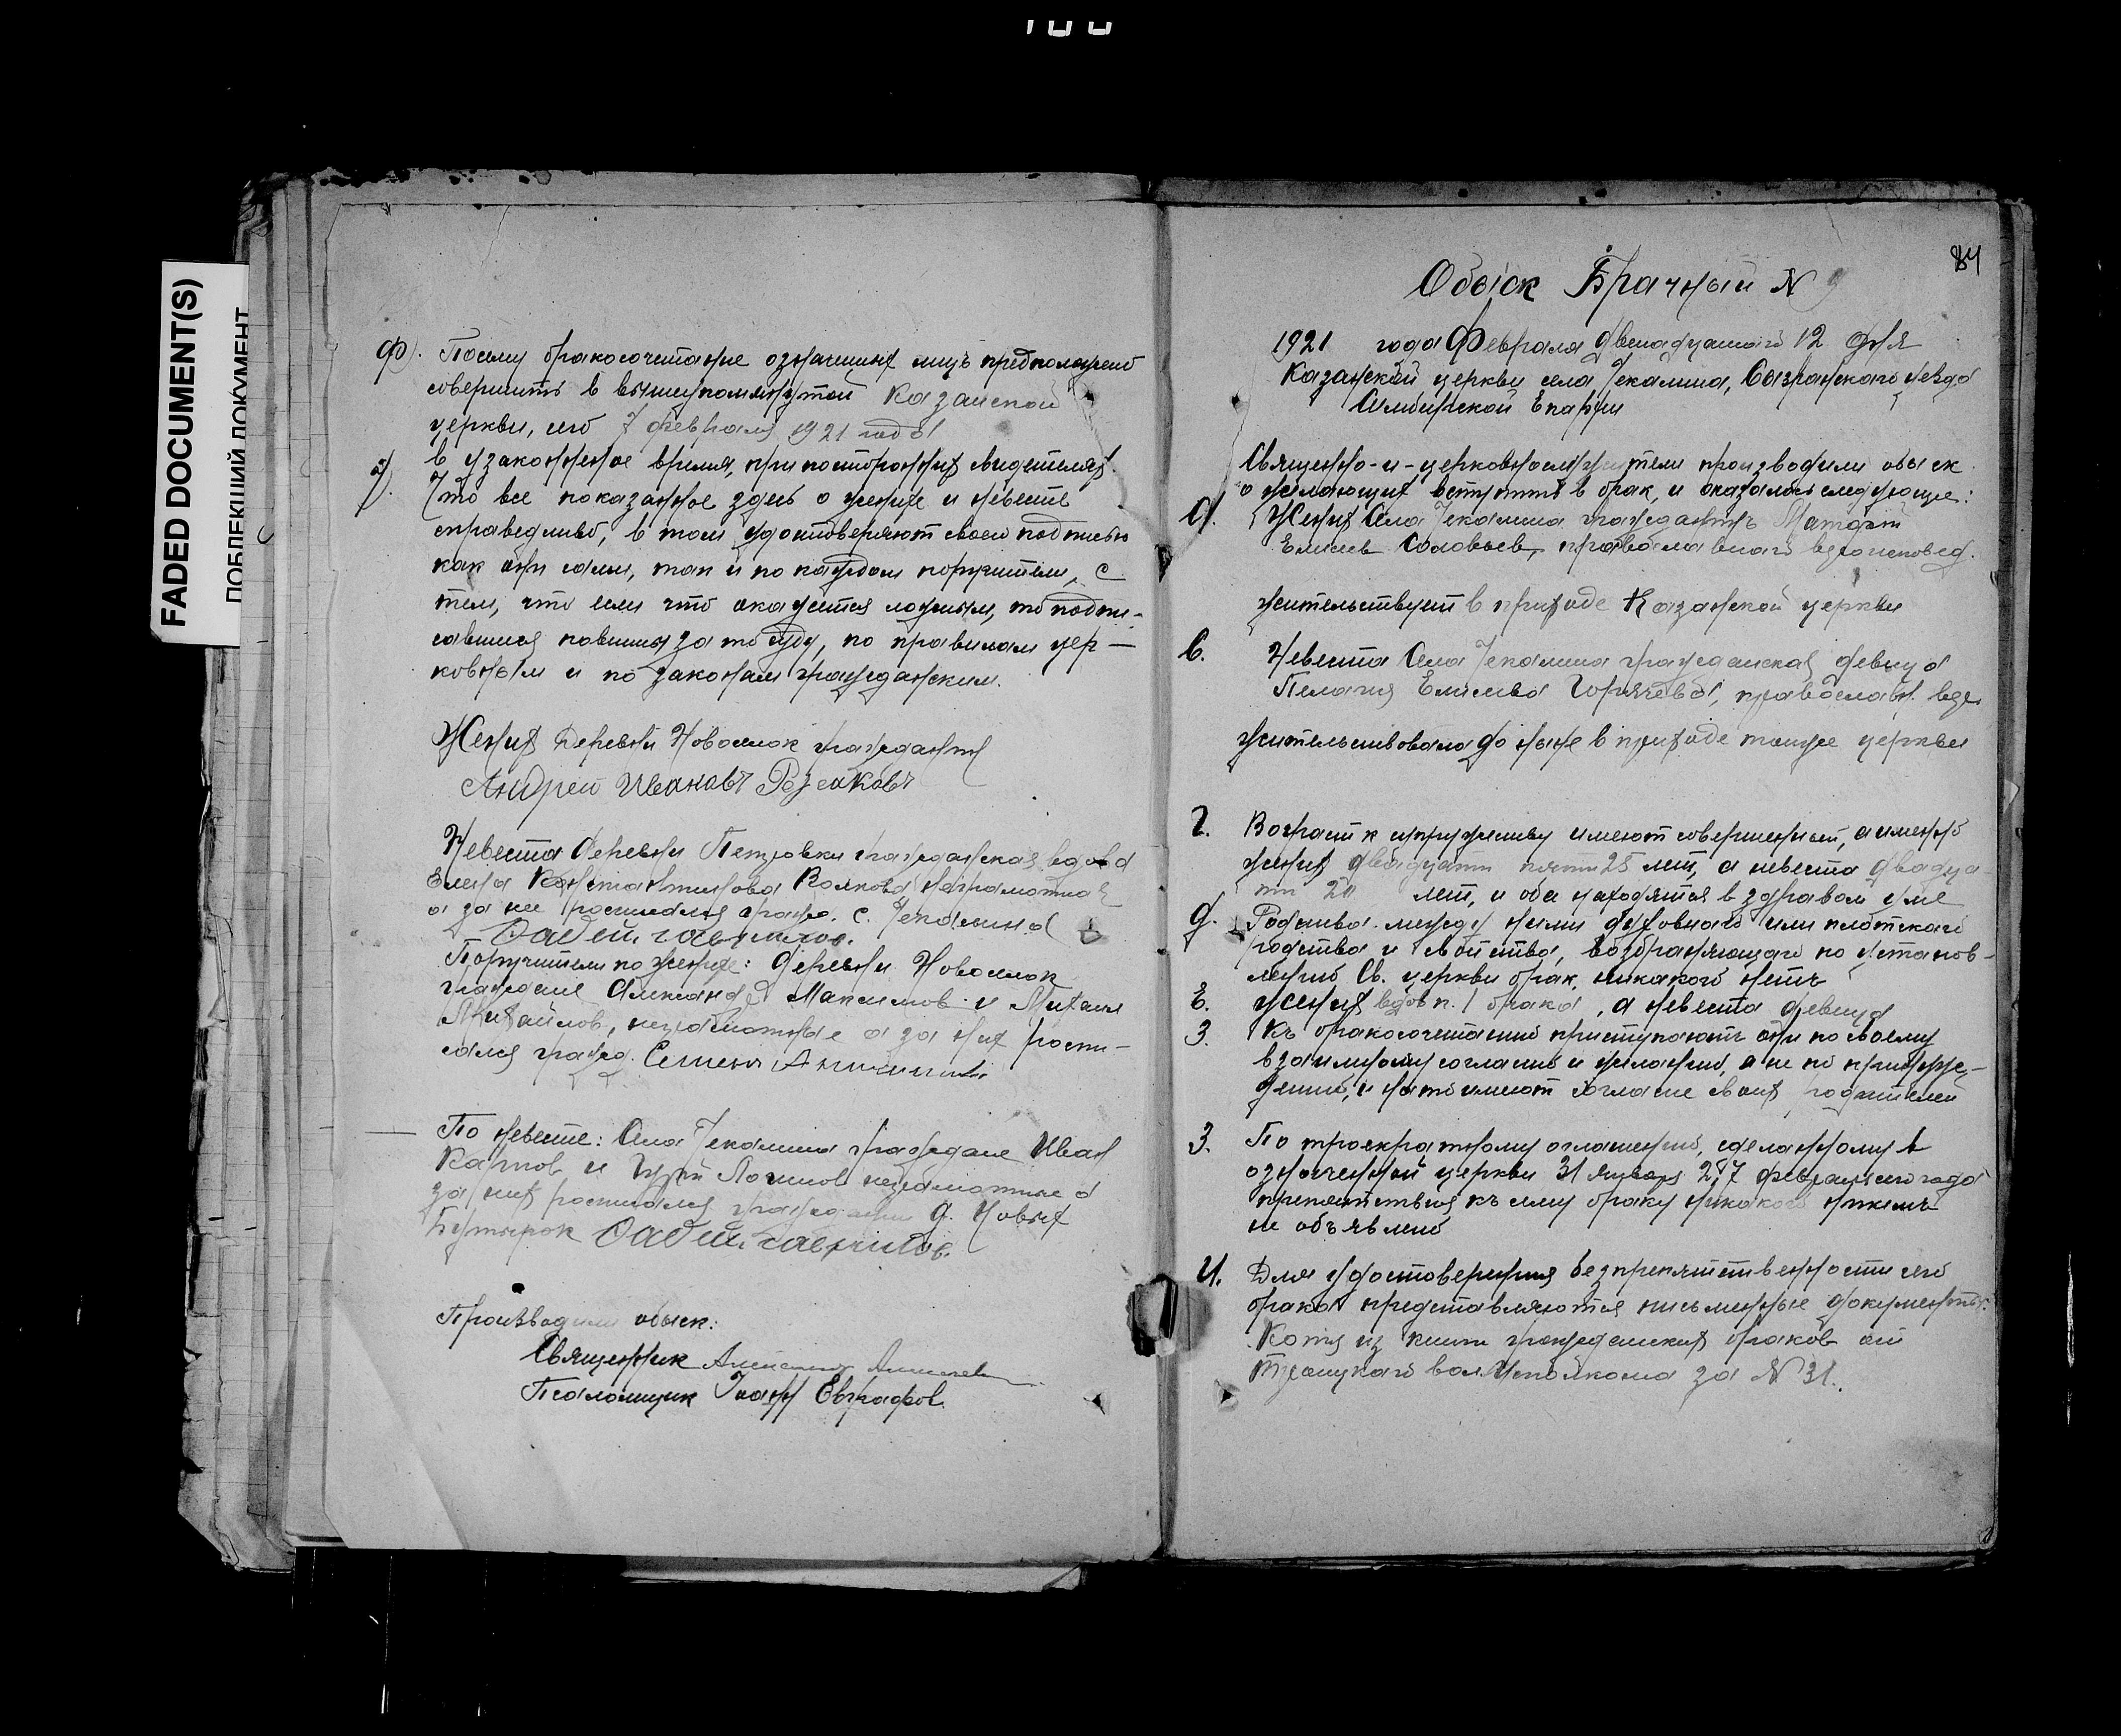 FADED DOCUMENT(S)
ПОБЛЕКШИЙ ДОКУМЕНТ
ф). Посему бракосочетание означенных лицъ предположено
совершить в вышеупомянутой Казанской
церкви, сего 7 февраля 1921 года
в узаконенное время, при посторонних свидетелях.
Что все показанное здесь о женихе и невесте
справедливо, в том удостоверяют своею подписью
как они сами, так и по каждом поручители, с
тем, что если что окажется ложным, то подпи-
савшиеся повинны за то суду, по правилам цер-
ковным и по законам гражданским.
Жених Деревни Новоселок гражданин
Андрей Ивановъ
Невеста Деревни Петровки гражданская вдова
Елена Константинова Волкова неграмотная
а за нее росписался гражд. с. Чекалина
Поручители по женихе: деревни Новоселок
граждане Александр Максимов и Михаил
Михайлов, неграмотные а за них роспи-
сался гражд. Семенъ
По невесте: Села Чекалина граждане Иван
Карпов и Логинов неграмотные а
за них росписался гражданин д. Новых
Бутырок
Производили обыск:
Священник
Псаломщик Иоанн Евграфов.
84
Обыск Брачный N 9
1921 года Февраля двенадцатого 12 дня
Казанской церкви села Чекалина, Сызранского уезда
Симбирской Епархии
Священно-и-церковнослужители производили обыск
о желающих вступить в брак, и оказалось следующее:
Жених Села Чекалина гражданинъ
Елисеев Соловьев, православнаго вероисповед.
жительствует в приходе Казанской церкви
Невеста Села Чекалина гражданская девица
Пелагия Елисеева Горячева, православн. вер.
жительствовала до ныне в приходе тойже церкви
Г. Возраст к супружеству имеют совершенный, а именно
жених двадцати пяти 25 лет, а невеста двадца-
ти 20 лет, и оба находятся в здравом уме
Д. Родства между ними духовнаго или плотскаго
родства и свойства, возбраняющаго по установ-
лению Св. церкви брак, никакого нетъ
Е. Жених вдов п. 1 брака, а невеста девица
З. Къ бракосочетанию приступаютъ они по своему
взаимному согласию и желанию, а не по принуж-
дению, и на то имеют согласие своих родителей
З. По троекратному оглашению, сделанному в
означенной церкви 31 января 2, 7 февраля сего года
препятствия къ сему браку никакого никемъ
не объявлено
И. Для удостоверения безпрепятственности сего
брака представляются письменные документы:
Копия из книги гражданских браков от
Троицкаго вол. Исполкома за N 31.